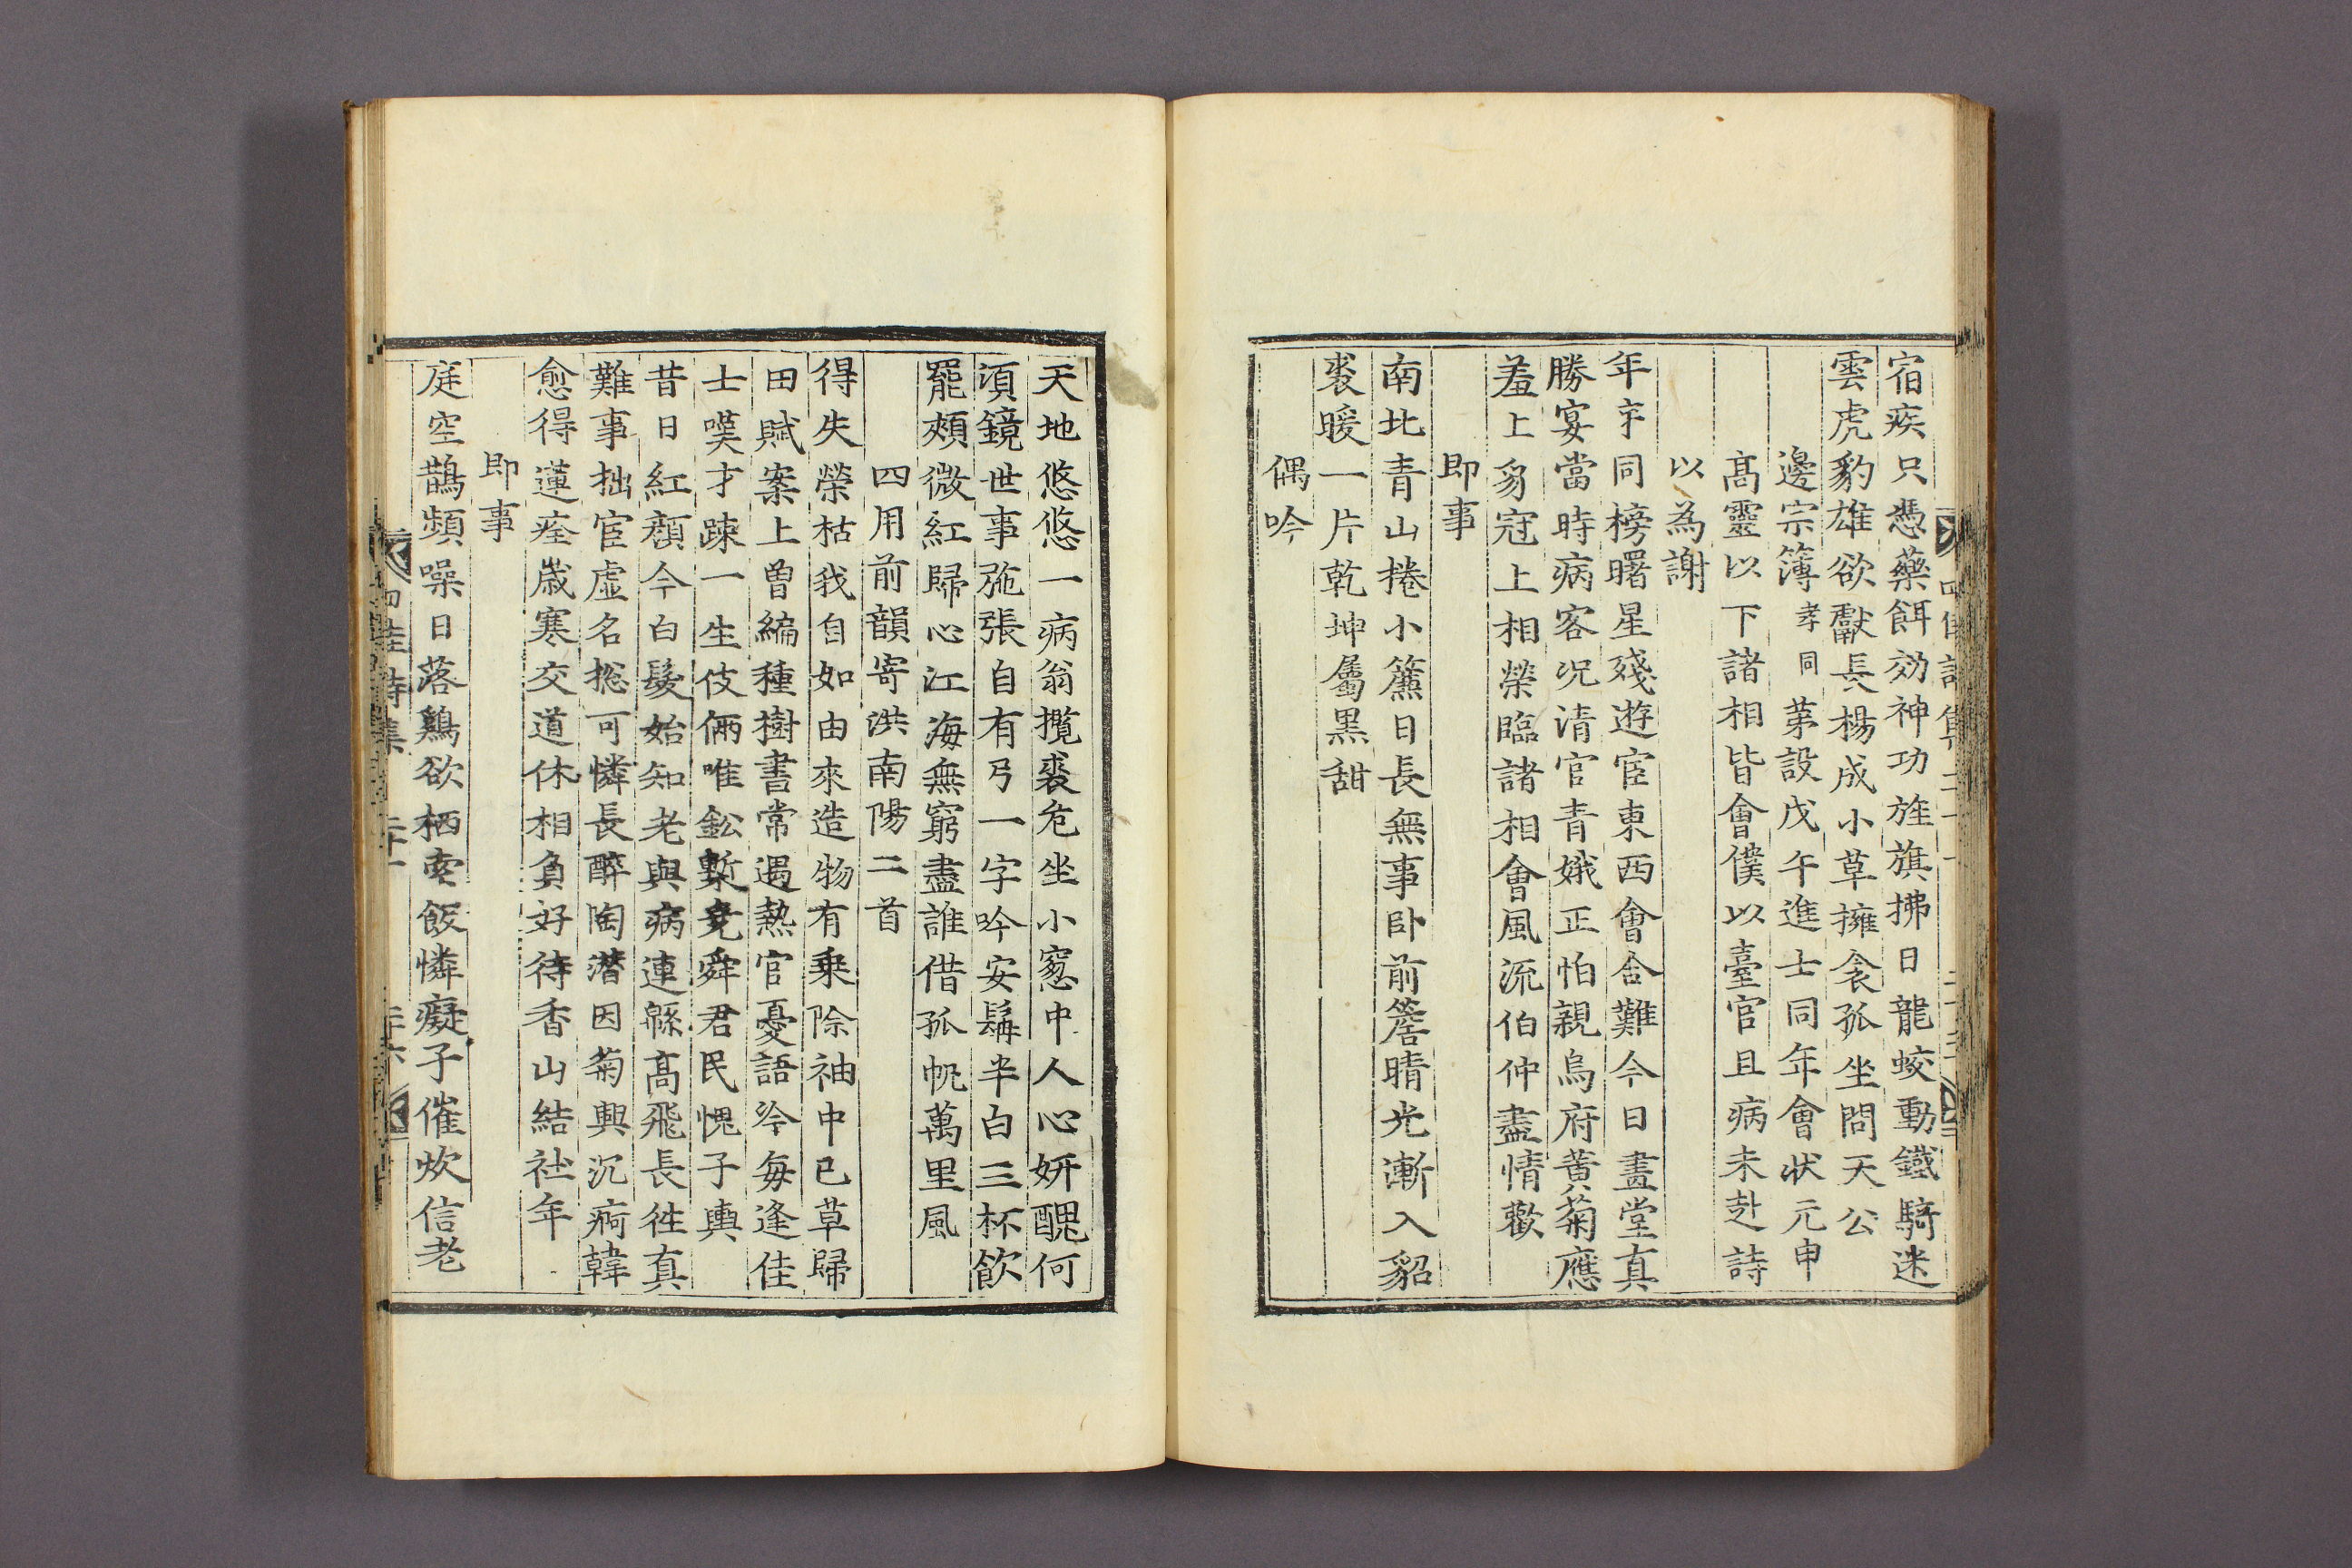 宿疾只憑藥餌効神功旌旗拂日龍蛟動鐵騎迷
雲虎豹雄欲獻長楊成小草擁衾孤坐問天公
邊宗簿孝同苐設戊午進士同年會狀元申
高靈以下諸相皆會僕以臺官且病未赴詩
以為謝
年同榜曙星殘遊宦東西會合難今日畫堂真
勝宴當時病客况清官青娥正怕親烏府黄菊應
羞上豸冠上相榮臨諸相會風流伯仲盡情歡
即事
南北青山捲小簾日長無事卧前簷晴光漸入貂
裘暖一片乾坤屬黒甜
偶吟
天地悠悠一病翁擁裘危坐小窓中人心妍醜何
須鏡世事弛張自有弓一字吟安鬚半白三杯飲
罷頰微紅歸心江海無窮盡誰借孤帆萬里風
四用前韻寄洪南陽二首
得失榮枯我自如由來造物有乗除袖中已草歸
田賦案上曽編種樹書常遇熱官憂語冷每逢佳
士嘆才踈一生伎倆唯鈆槧尭舜君民愧子輿
昔日紅顔今白髮始知老與病連緜高飛長徃真
難事拙宦虚名摠可憐長醉陶潜因菊興沉痾韓
愈得蓮痊歳寒交道休相負好待香山結社年
即事
庭空鵲頻噪日落鷄欲栖索飯憐癡子催炊信老
四佳詩集